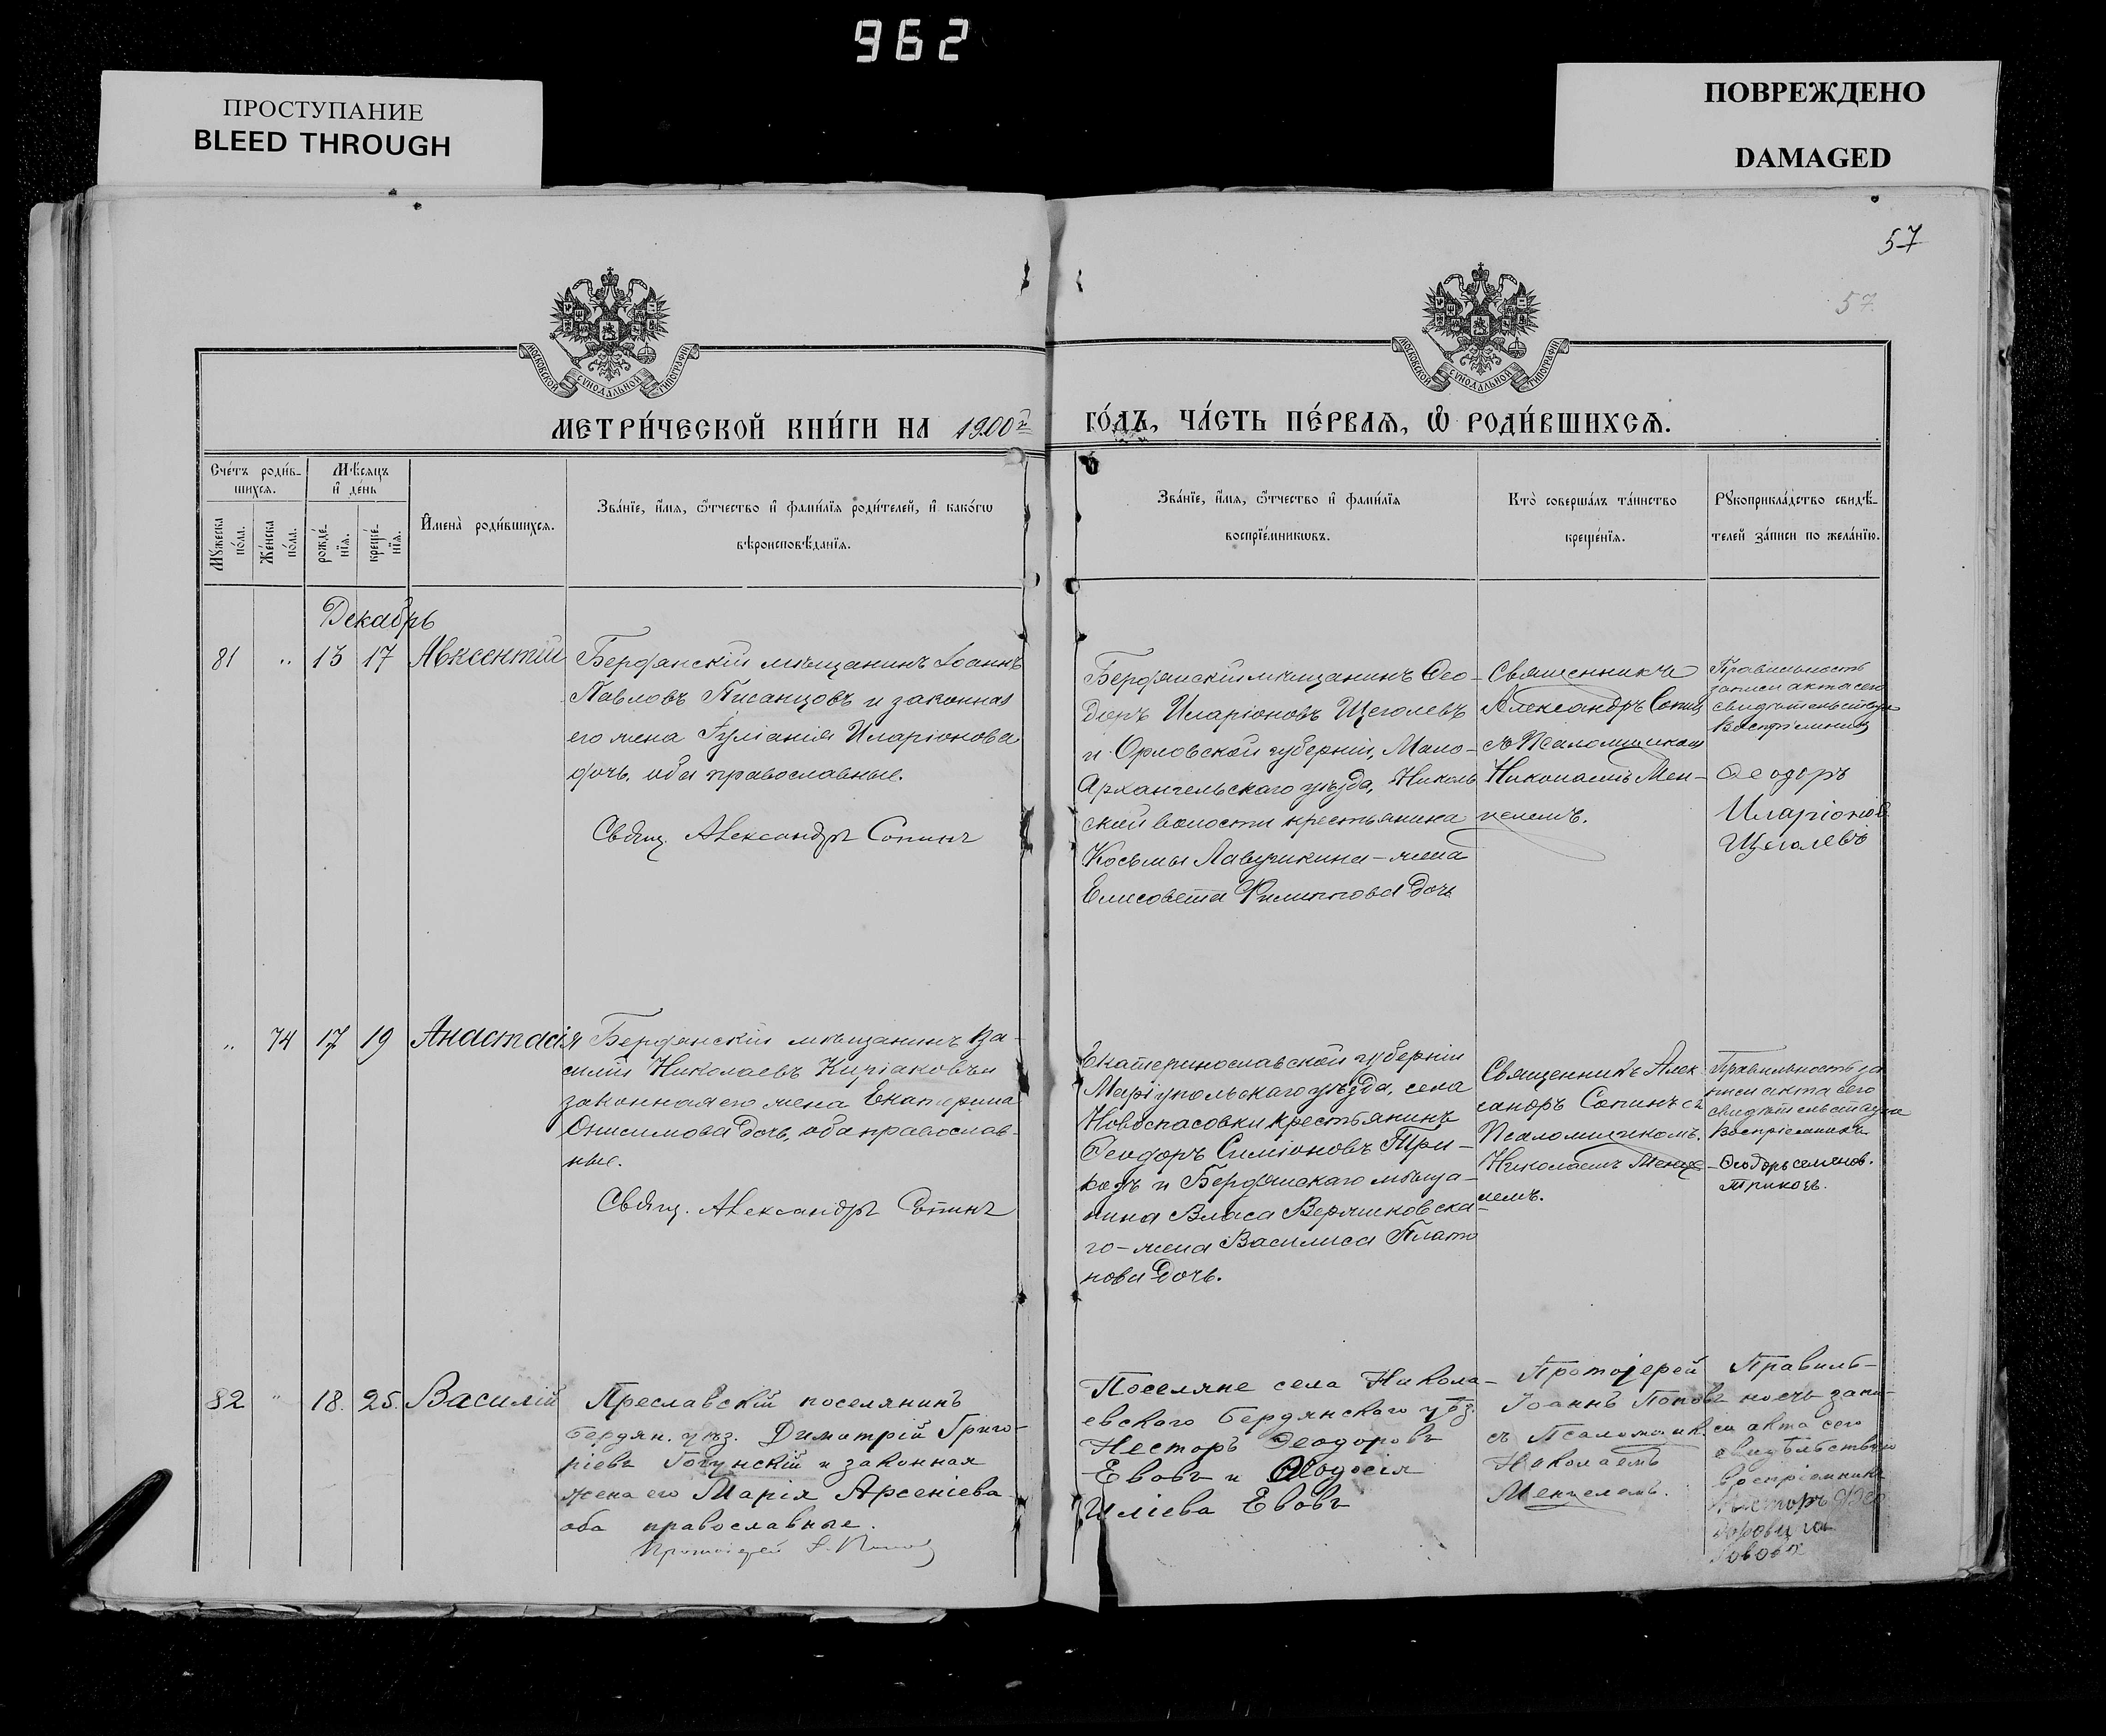 962
ПРОСТУПАНИЕ
BLEED THROUGH
ПОВРЕЖДЕНО
DAMAGED
57
57
МОСКОВСКОЙ СѴНОДАЛЬНОЙ ТИПОГРАФІИ
МОСКОВСКОЙ СѴНОДАЛЬНОЙ ТИПОГРАФІИ
МЕТРИ́ЧЕСКОЙ КНИ́ГИ НА 1900й
ГО́ДЪ, ЧА́СТЬ ПЕ́РВАѦ, Ѡ҆ РОДИ́ВШИХСѦ.
Сче́тъ роди́в-
шихсѧ.
Мꙋ́жеска
по́ла.
Же́нска
по́ла.
Мѣ́сѧцъ
и҆ де́нь
рожде́-
нїѧ.
креще́-
нїѧ.
И҆мена̀ роди́вшихсѧ.
Зва́нїе, и҆́мѧ, ѻ҆́тчество и҆ фами́лїѧ роди́телей, и҆ како́гѡ
вѣроисповѣ́данїѧ.
Зва́нїе, и҆́мѧ, ѻ҆́тчество и҆ фами́лїѧ
воспрїе́мникѡвъ.
Кто̀ соверша́лъ та́инство
креще́нїѧ.
Рꙋкоприкла́дство свидѣ́-
телей за́писи по жела́нїю.
Декабрь
81 " 13 17 Авксентій
Бердянскій мѣщанинъ Іоаннъ
Павловъ Писанцовъ и законная
его жена Іуліанія Иларіонова
дочь, оба православные.
Свящ. Александръ Сопинъ
Бердянскій мѣщанинъ Ѳео-
доръ Иларіоновъ Щеголевъ
и Орловской губерніи, Мало-
Архангельскаго уѣзда, Николь
ской волости крестьянина
Косьмы Лавушкина - жена
Елисавета Филиппова дочь
Священникъ
Александръ Сопинъ
съ Псаломщикомъ
Николаемъ Мен-
челемъ.
Правильность
записи акта сего
свидѣтельствую
Воспріемникъ
Ѳеодоръ
Иларіонов
Щеголевъ
" 74 17 19 Анастасія
Бердянскій мѣщанинъ Ва-
силій Николаевъ Киріаковъ и
законная его жена Екатерина
Онисимова дочь, оба православ-
ные.
Свящ. Александръ Сопинъ
Екатеринославской губерніи
Маріупольскаго уѣзда, села
Новоспасовки крестьянинъ
Ѳеодоръ Симіоновъ Три-
козъ и Бердянскаго мѣща-
нина Власа Верминковска-
го - жена Василиса Плато
нова дочь.
Священникъ Алек
сандръ Сопинъ съ
Псаломщикомъ
Николаемъ Менче-
лемъ.
Правильность за
писи акта сего
свидѣтельствую
Воспріемникъ
Ѳеодоръ семенов.
Трикозъ.
82 " 18. 25. Василій
Преславскій поселянинъ
Бердян. уѣз. Димитрій Григо-
ріевъ Гогунскій и законная
жена его Марія Арсеніева
оба православные.
Протоіерей І. Поповъ
Поселяне села Никола-
евского Бердянского уѣз.
Несторъ Ѳеодоровъ
Евовъ и Ѳеодосія
Иліева Евовъ
Протоіерей
Іоаннъ Поповъ
съ Псаломщик.
Николаемъ
Менчелемъ.
Правиль-
ность запи-
си акта сего
свидѣтельствую
воспріемникъ